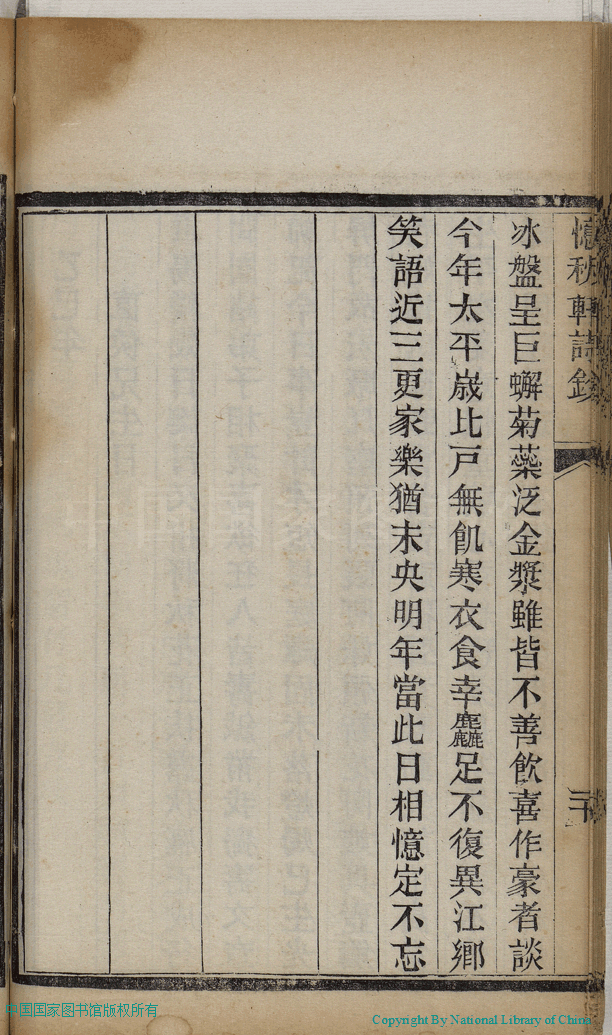 憶秋軒詩鈔
冰盤呈巨蠏菊蘂泛金漿雖皆不善飲喜作豪者談
今年太平嵗比戸無飢寒衣食幸麤足不復異江鄉
笑語近三更家樂猶未央明年當此日相憶定不忘
中国国家图书馆版权所有
Copyright By National Library of China